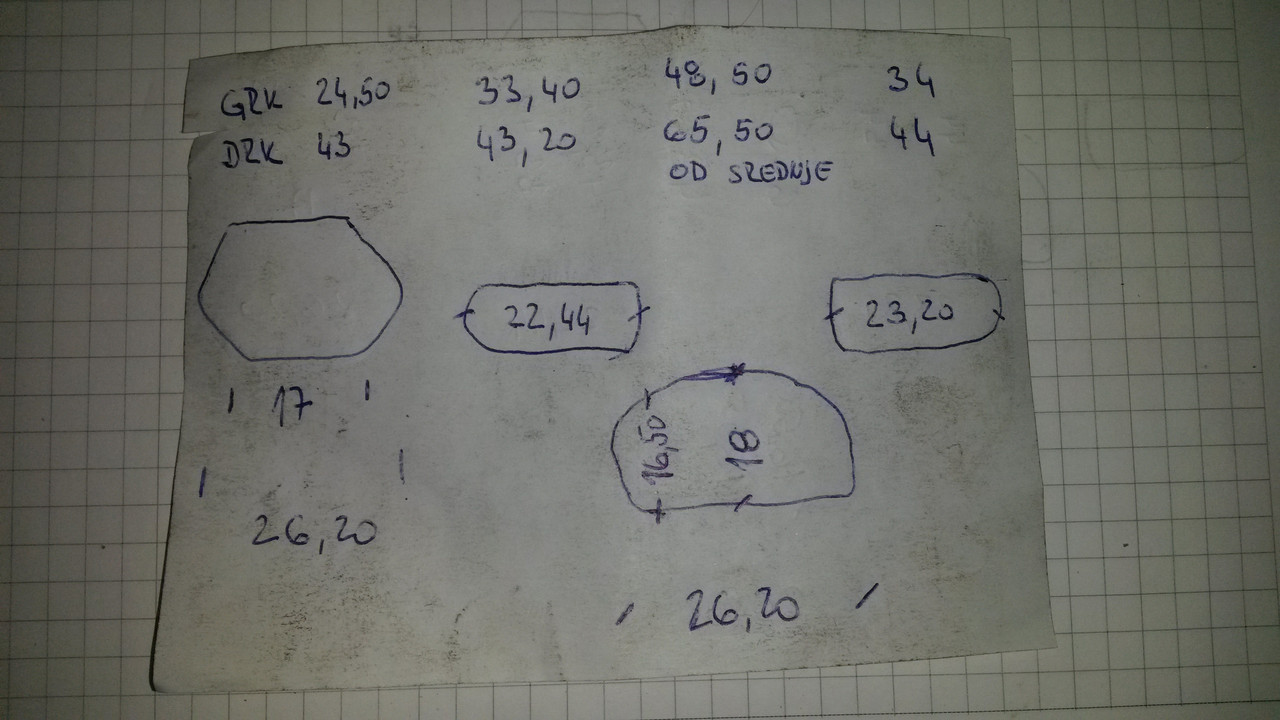 GRK 24,50 33,40 48,50 34
DRK 43 43,20 65,50 44
OD SREDNJE
22,44 23,20
17
16,50 18
26,20
26,20